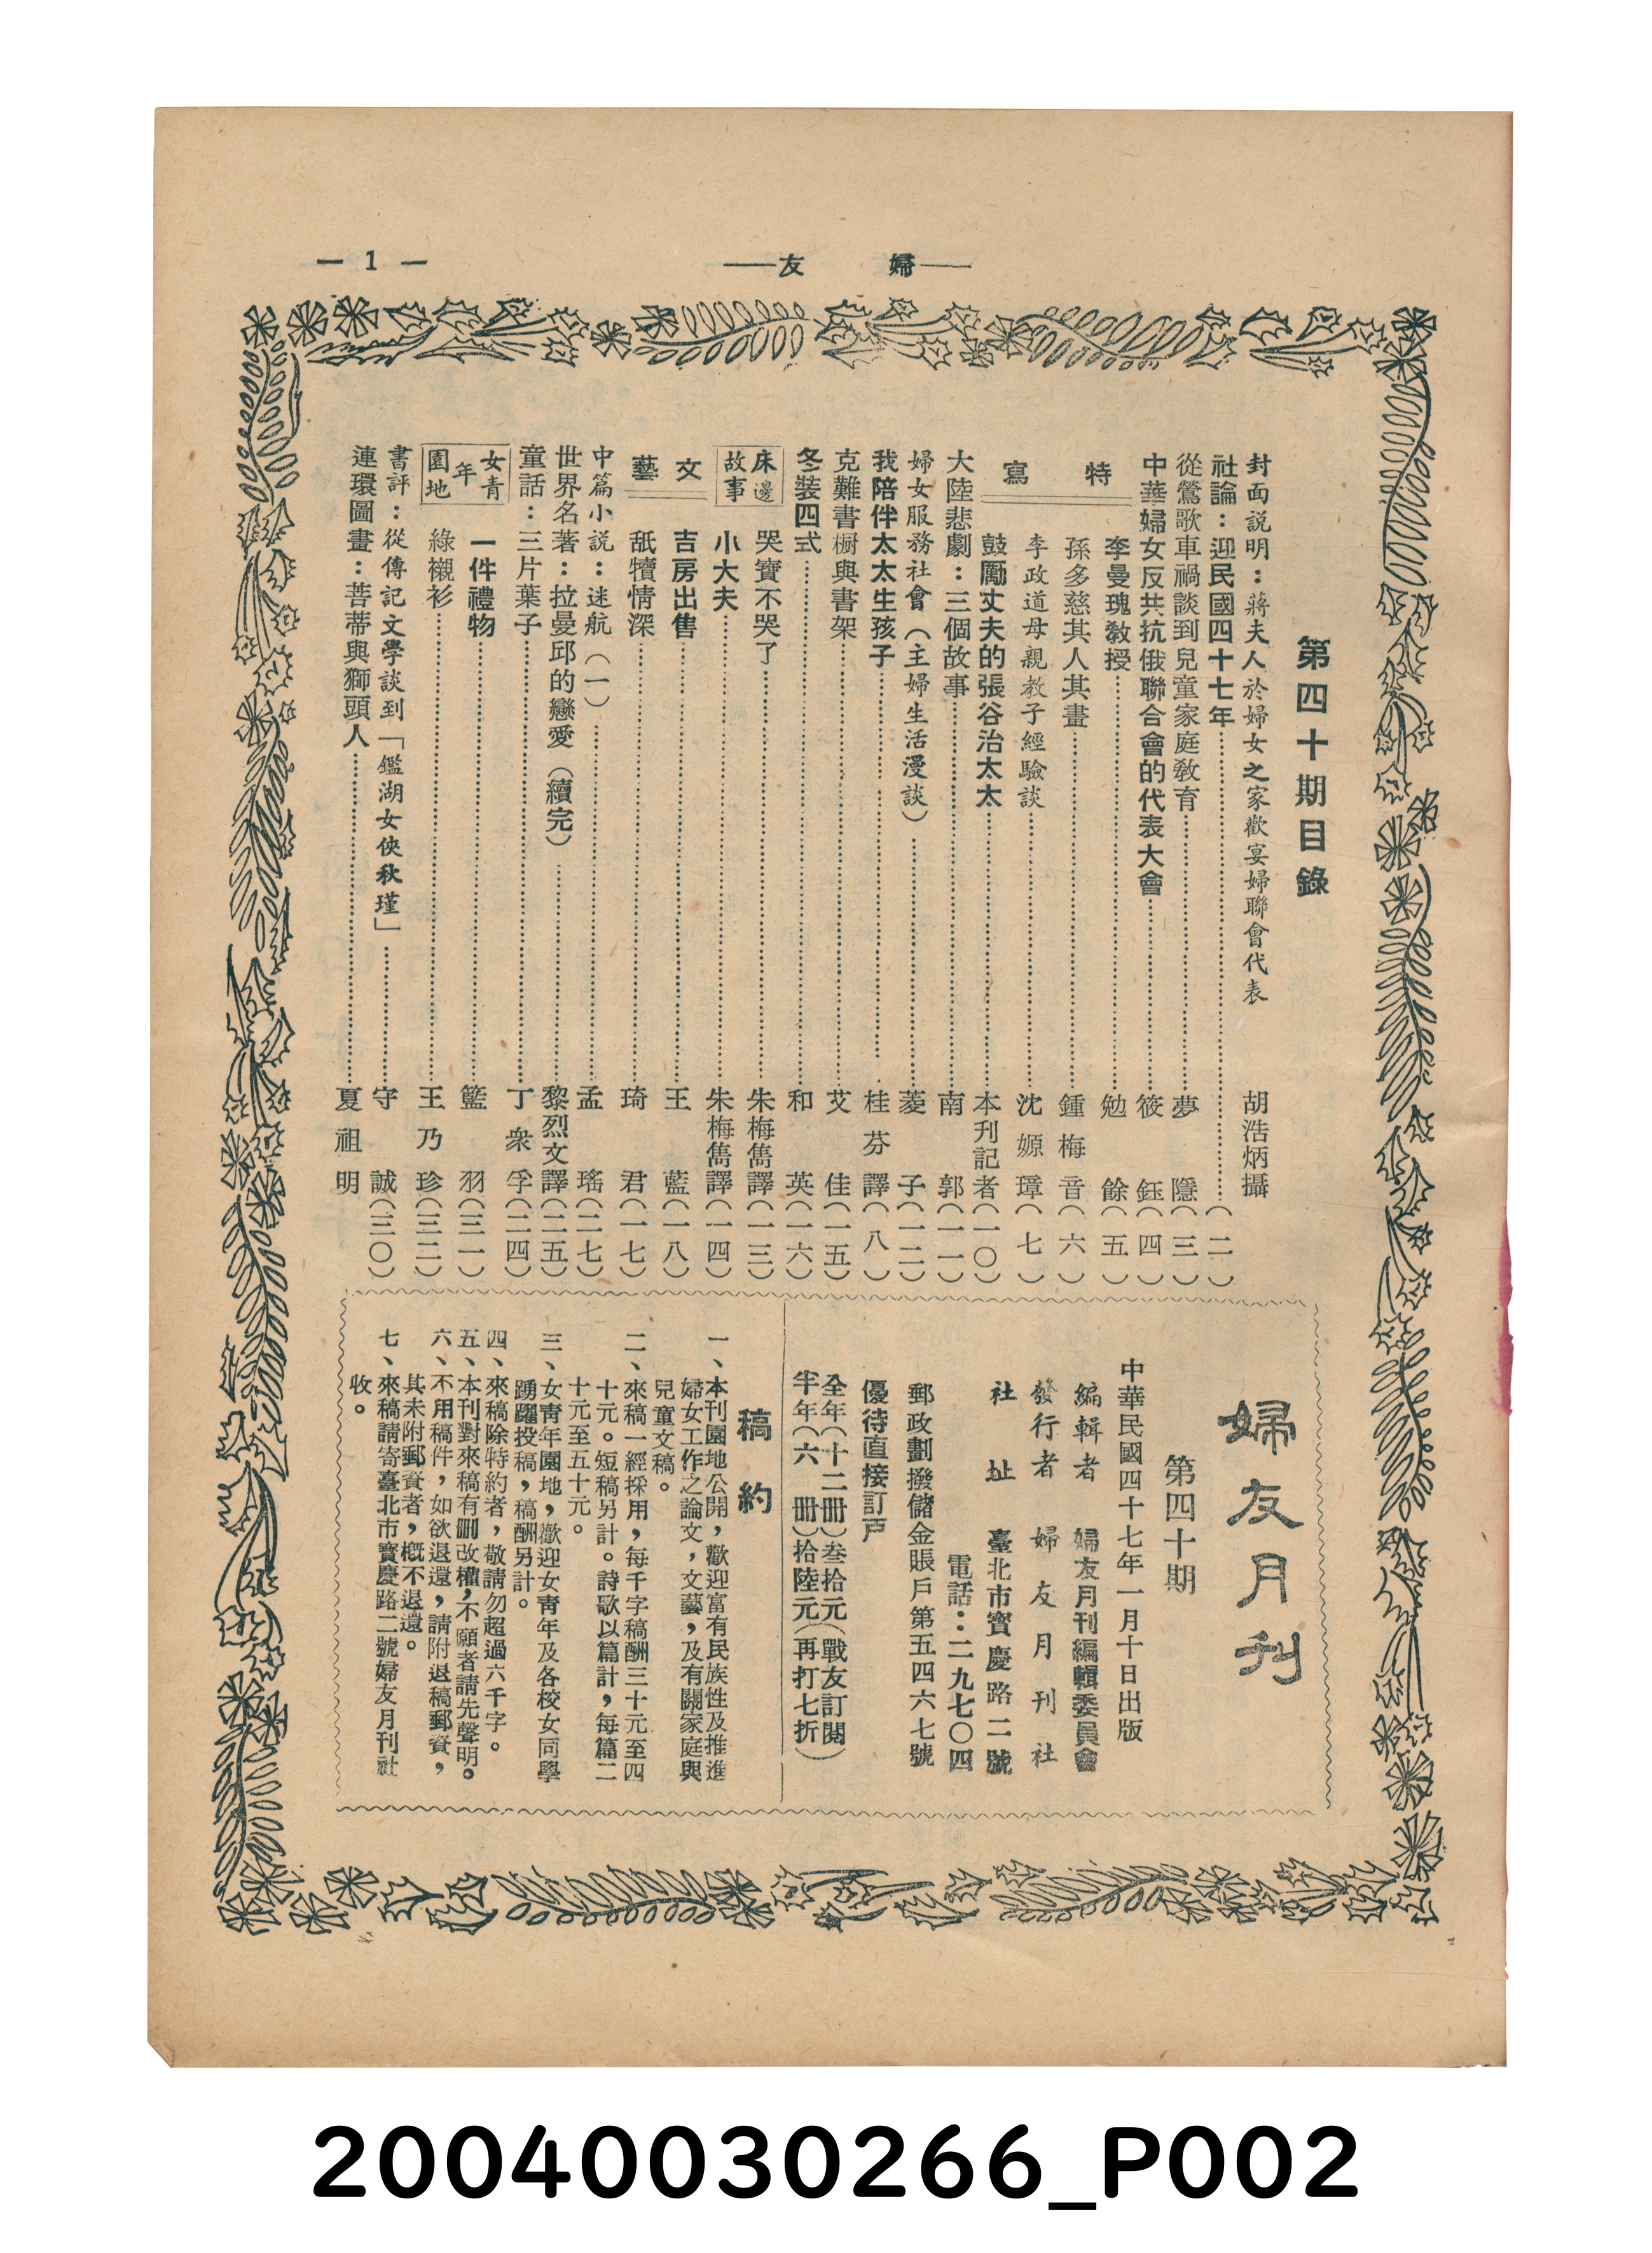 — 1 —
——友　婦——
第四十期目錄
封面説明：蔣夫人於婦女之家歡宴婦聯會代表 胡浩炳攝
社論：迎民國四十七年……（二）
從鶯歌車禍談到兒童家庭教育……夢隱（三）
中華婦女反共抗俄聯合會的代表大會……筱鈺（四）
特寫
李曼瑰教授……勉餘（五）
孫多慈其人其畫……鍾梅音（六）
李政道母親教子經驗談……沈嫄璋（七）
鼓勵丈夫的張谷治太太……本刊記者（一〇）
大陸悲劇：三個故事……南郭（一一）
婦女服務社會（主婦生活漫談）……菱子（一二）
我陪伴太太生孩子……桂芬譯（八）
克難書橱與書架……艾佳（一五）
冬裝四式……和英（一六）
床邊故事
哭寶不哭了……朱梅雋譯（一三）
小大夫……朱梅雋譯（一四）
文藝
吉房出售……王藍（一八）
舐犢情深……琦君（一七）
中篇小説：迷航（一）……孟瑤（二七）
世界名著：拉曼邱的戀愛（續完）……黎烈文譯（二五）
童話：三片葉子……丁衆孚（二四）
女青年園地
一件禮物……籃羽（三一）
綠襯衫……王乃珍（三二）
書評：從傳記文學談到「鑑湖女俠秋瑾」……守誠（三〇）
連環圖畫：菩蒂與獅頭人……夏祖明
婦友月刊
第四十期
中華民國四十七年一月十日出版
編輯者 婦友月刊編輯委員會
發行者 婦友月刊社
社址 臺北市寶慶路二號
電話：二九七〇四
郵政劃撥儲金賬戶第五四六七號
優待直接訂戶
全年（十二冊）叁拾元（戰友訂閱
半年（六　冊）拾陸元（再打七折）
稿約
一、本刊園地公開，歡迎富有民族性及推進
婦女工作之論文，文藝，及有關家庭與
兒童文稿。
二、來稿一經採用，每千字稿酬三十元至四
十元。短稿另計。詩歌以篇計，每篇二
十元至五十元。
三、女青年園地，歡迎女青年及各校女同學
踴躍投稿，稿酬另計。
四、來稿除特約者，敬請勿超過六千字。
五、本刊對來稿有刪改權，不願者請先聲明。
六、不用稿件，如欲退還，請附退稿郵資，
其未附郵資者，概不退還。
七、來稿請寄臺北市寶慶路二號婦友月刊社
收。
20040030266_P002